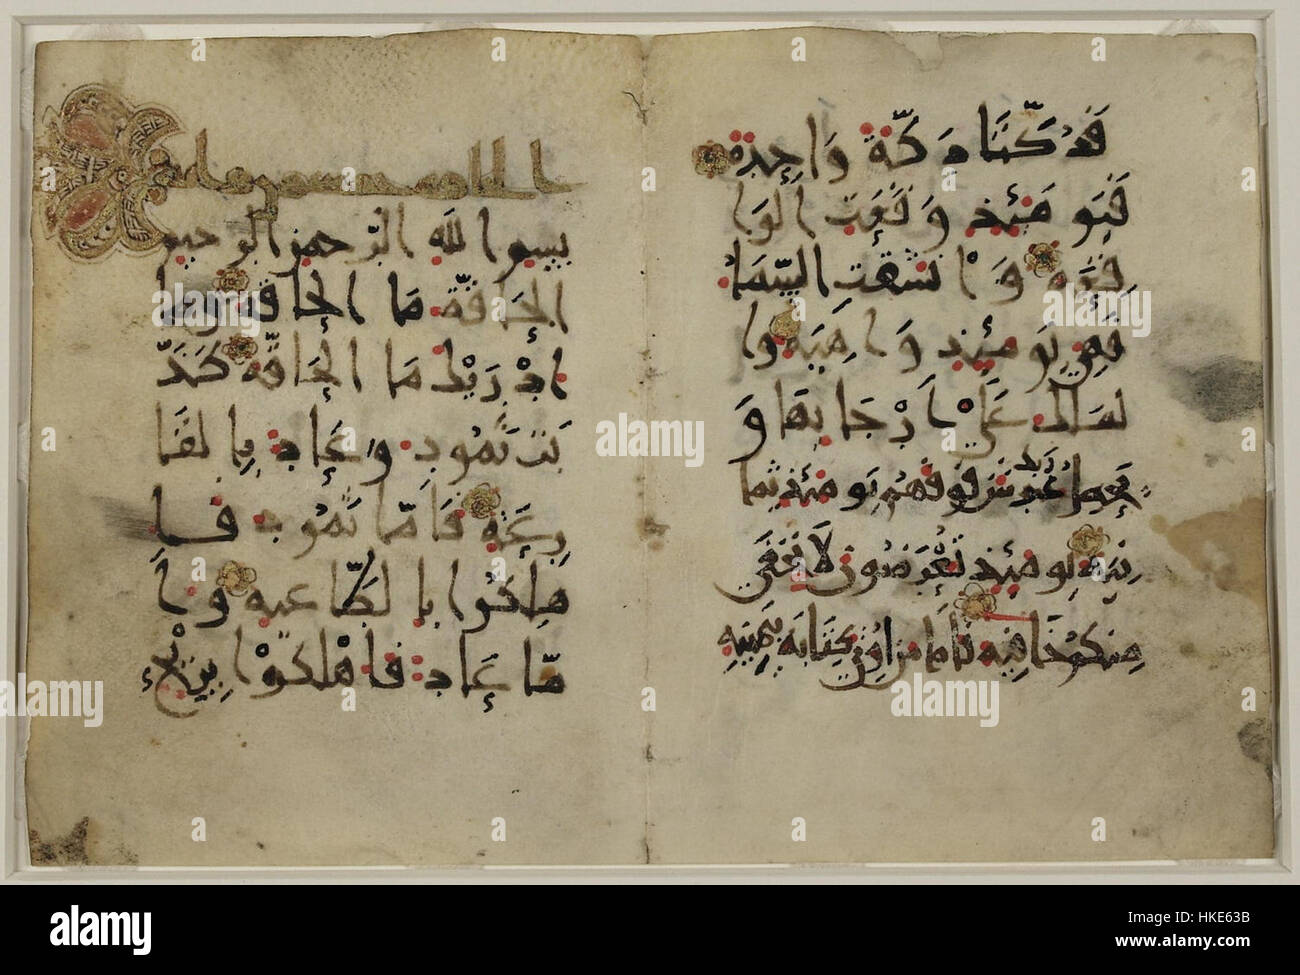 فَدُكَّتَا دَكَّةً وَاحِدَةً
فَيَوْمَئِذٍ وَقَعَتِ الوَا
قِعَةُ وَانْشَقَّتِ السَّمَا
فَهِيَ يَوْمَئِذٍ وَاهِيَةٌ وَا
لمَلَكُ عَلَى اَرْجَائِهَا وَ
يَحْمِلُ عَرْشَ رَبِّكَ فَوْقَهُمْ يَوْمَئِذٍ ثَمَا
نِيَةٌ يَوْمَئِذٍ تُعْرَضُونَ لَا تَخْفَى
مِنكُمْ خَافِيَةٌ فَاَمَّا مَنْ اُوتِيَ كِتَابَهُ بِيَمِينِهِ
بِسْمِ اللهِ الرَّحْمنِ الرَّحِيمِ
الحَاقَّةُ مَا الحَاقَّةُ وَمَا
اَدْرَيكَ مَا الحَاقَّةُ كَذَّ
بَتْ ثَمُودُ وَعَادٌ بِالقَا
رِعَةِ فَاَمَّا ثَمُودُ فَا
هْلِكُوا بِالطَّاغِيَةِ وَاَ
مَّا عَادٌ فَاهْلِكُوا بِرِيحٍ
alamy
a
alamy stock photo
HKE63B
www.alamy.com